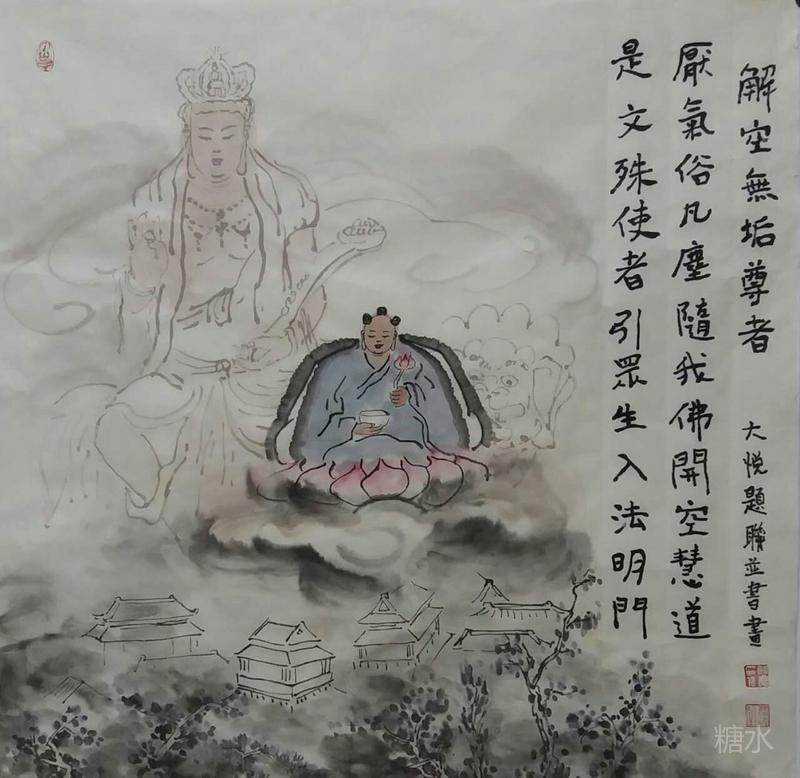 解空無垢尊者
大悦題聯並書畫
厭氣俗凡塵隨我佛開空慧道
是文殊使者引眾生入法明門
糖水